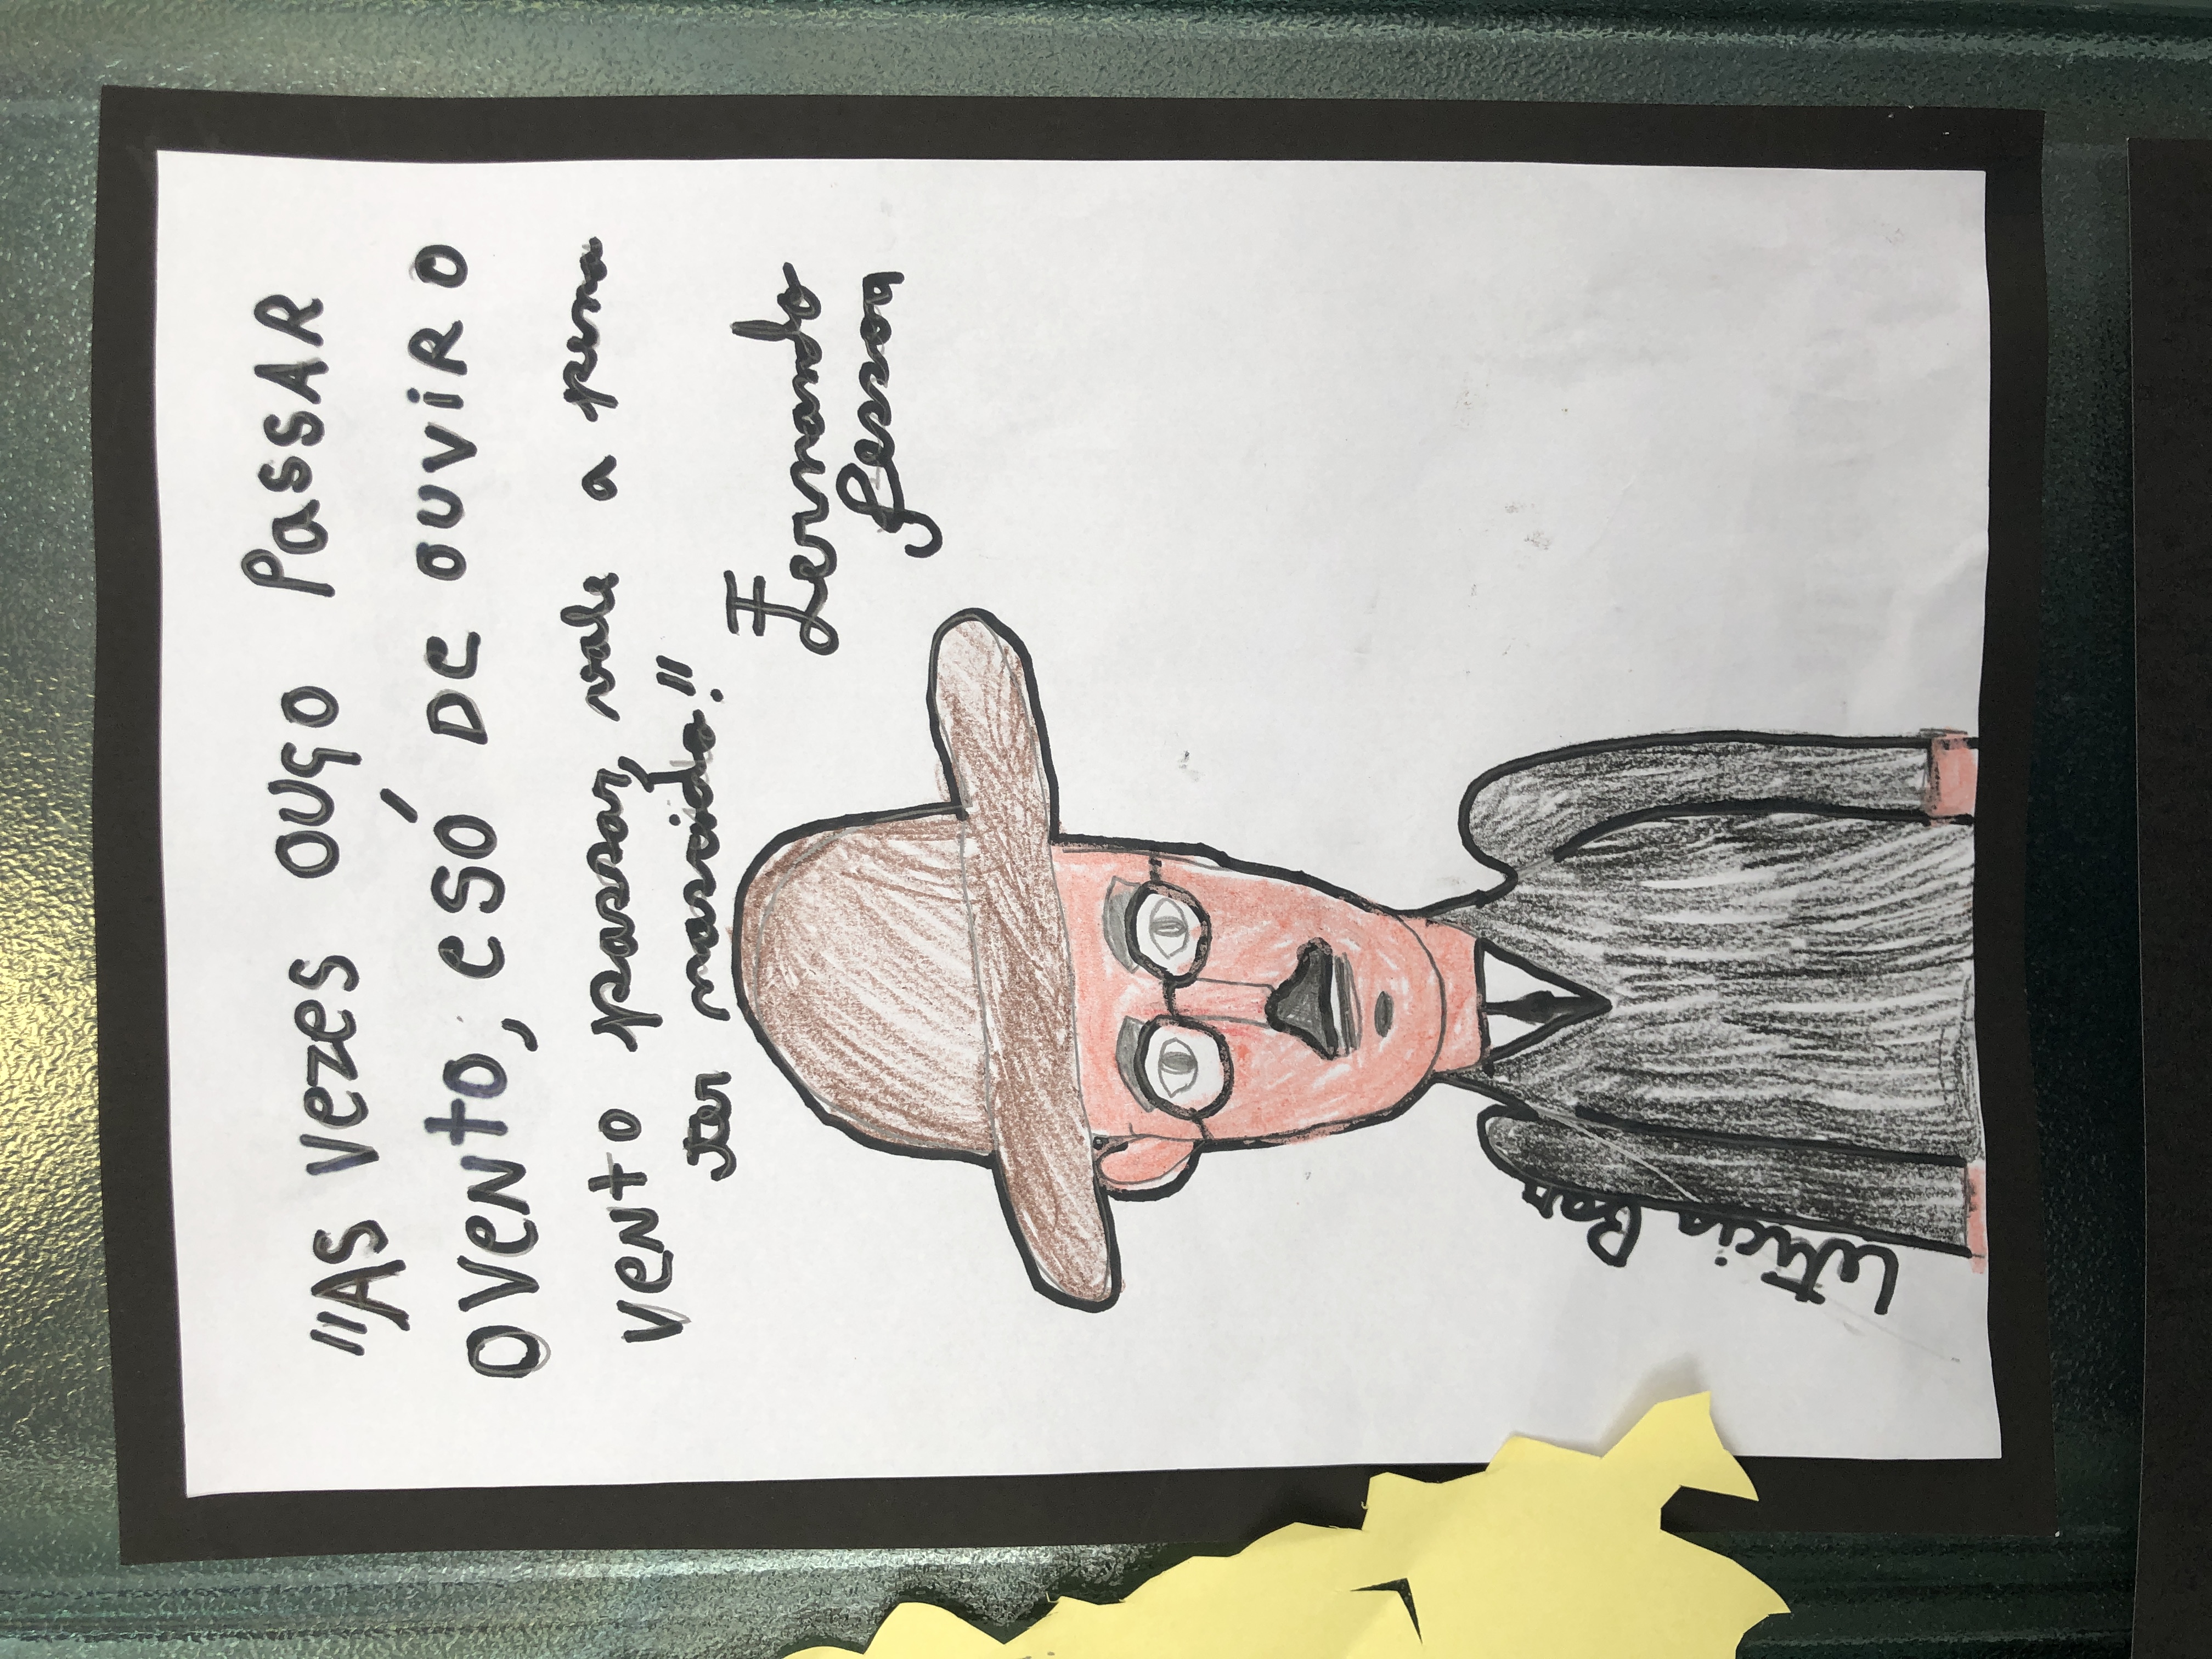 "AS vezes ouço PassAR
o vento, e só De ouvir o
vento passar, vale a pena
ter nascido!"
Fernando
Pessoa
Letícia